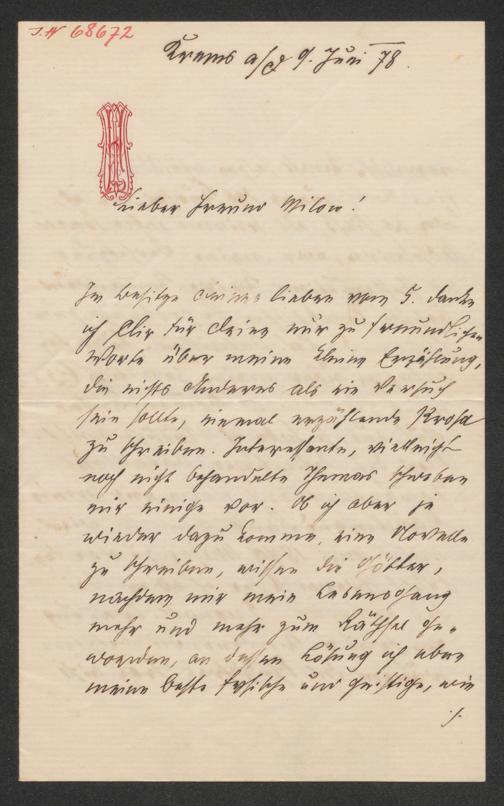 J.N 68672
Krems a/d 9. Juni 78.
Lieber Freund Milow!
Im Besitze Deines lieben vom 5. danke
ich Dir für Deine nur zu freundlichen
Worte über meine kleine Erzählung,
die nichts Anderes als ein Versuch
sein sollte, einmal erzählende Prosa
zu schreiben. Interessante, vielleicht
noch nicht behandelte Themas schweben
mir einige vor. Ob ich aber je
wieder dazu komme, eine Novelle
zu schreiben, wissen die Götter,
nachdem mir mein Lebensgang
mehr und mehr zum Räthsel ge-
worden, an dessen Lösung ich eben
meine beste fysische und geistige, wie
./.